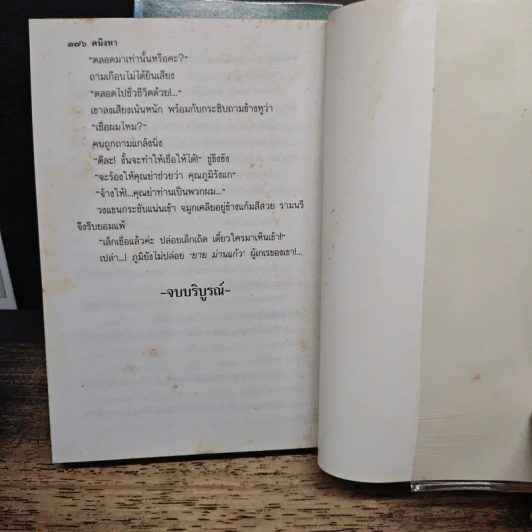 ๓๗๖ คนึงหา
"ตลอดมาเท่านั้นหรือคะ?"
ถามเกือบไม่ได้ยินเสียง
"ตลอดไปชั่วชีวิตด้วย!..."
เขาลงเสียงเน้นหนัก พร้อมกับกระซิบถามข้างหูว่า
"เชื่อผมไหม?"
คนถูกถามแกล้งนิ่ง
"ดีละ! งั้นจะทำให้เชื่อให้ได้!" ขู่ขึงขัง
"จะร้องให้คุณย่าช่วยว่า คุณภูมิรังแก"
"จ้างให้!...คุณย่าท่านเป็นพวกผม..."
วงแขนกระชับแน่นเข้า จมูกเคลียอยู่ข้างแก้มสีสวย รามนรี
จึงรีบยอมแพ้
"เล็กเชื่อแล้วค่ะ ปล่อยเล็กเถิด เดี๋ยวใครมาเห็นเข้า!"
เปล่า...! ภูมิยังไม่ปล่อย 'ยาย ม่านแก้ว' ผู้เกเรของเขา!...
-จบบริบูรณ์-